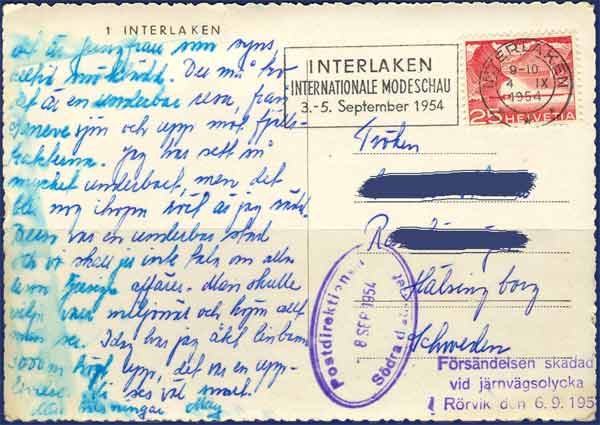 1 INTERLAKEN
Det är Jungfrau som syns,
alltid snöklädd. Du må tro
det är en underbar resa, från
Geneve sjön och upp mot fjäll-
trakterna. Jag har sett så
mycket underbart, men det
blir nog ihopa
var en underbar stad
och vi skall ju inte tala om alla
affärer. Man skulle
vilja vara miljonär och köpa allt
man ser. Idag har jag åkt linbana
3000 m högt upp, det var en upp-
levelse. Vi ses väl snart.
hälsningar May
INTERLAKEN
INTERNATIONALE MODESCHAU
3.-5. September 1954
INTERLAKEN
9-10
4 IX
1954
25 HELVETIA
Fröken
Hälsingborg
Schweden
Postdirektionen
8 SEP 1954
Södra distriktet
Försändelsen skadad
vid järnvägsolycka
i Rörvik den 6.9.195